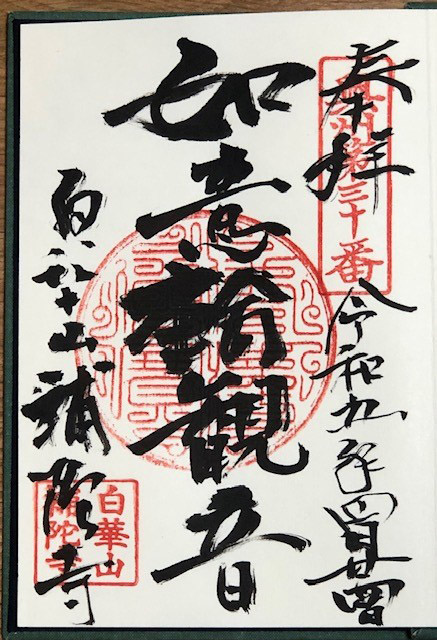 奉拝
州第三十番
令和 年四月廿四日
如意輪觀音
白華山補陀寺
白華山
補陀寺